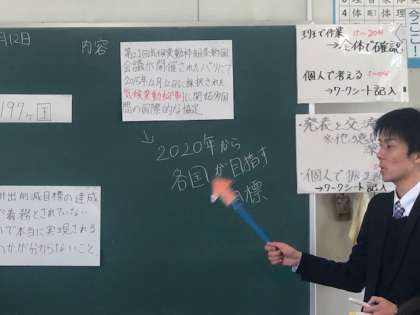 月12日
内容
第21回気候変動枠組条約国
会議が開催されたパリにて
2015年12月12日に採択された
気候変動抑制に関する多国
間の国際的な協定
197ヶ国
↓
2020年から
各国が目指す
目標
排出削減目標の達成
義務とされていない
で本当に実現される
かが分からないこと
班で作業
→全体で確認
個人で考える
→ワークシート記入
・発表と交流
・個人で
→ワークシート記入
今ここ!